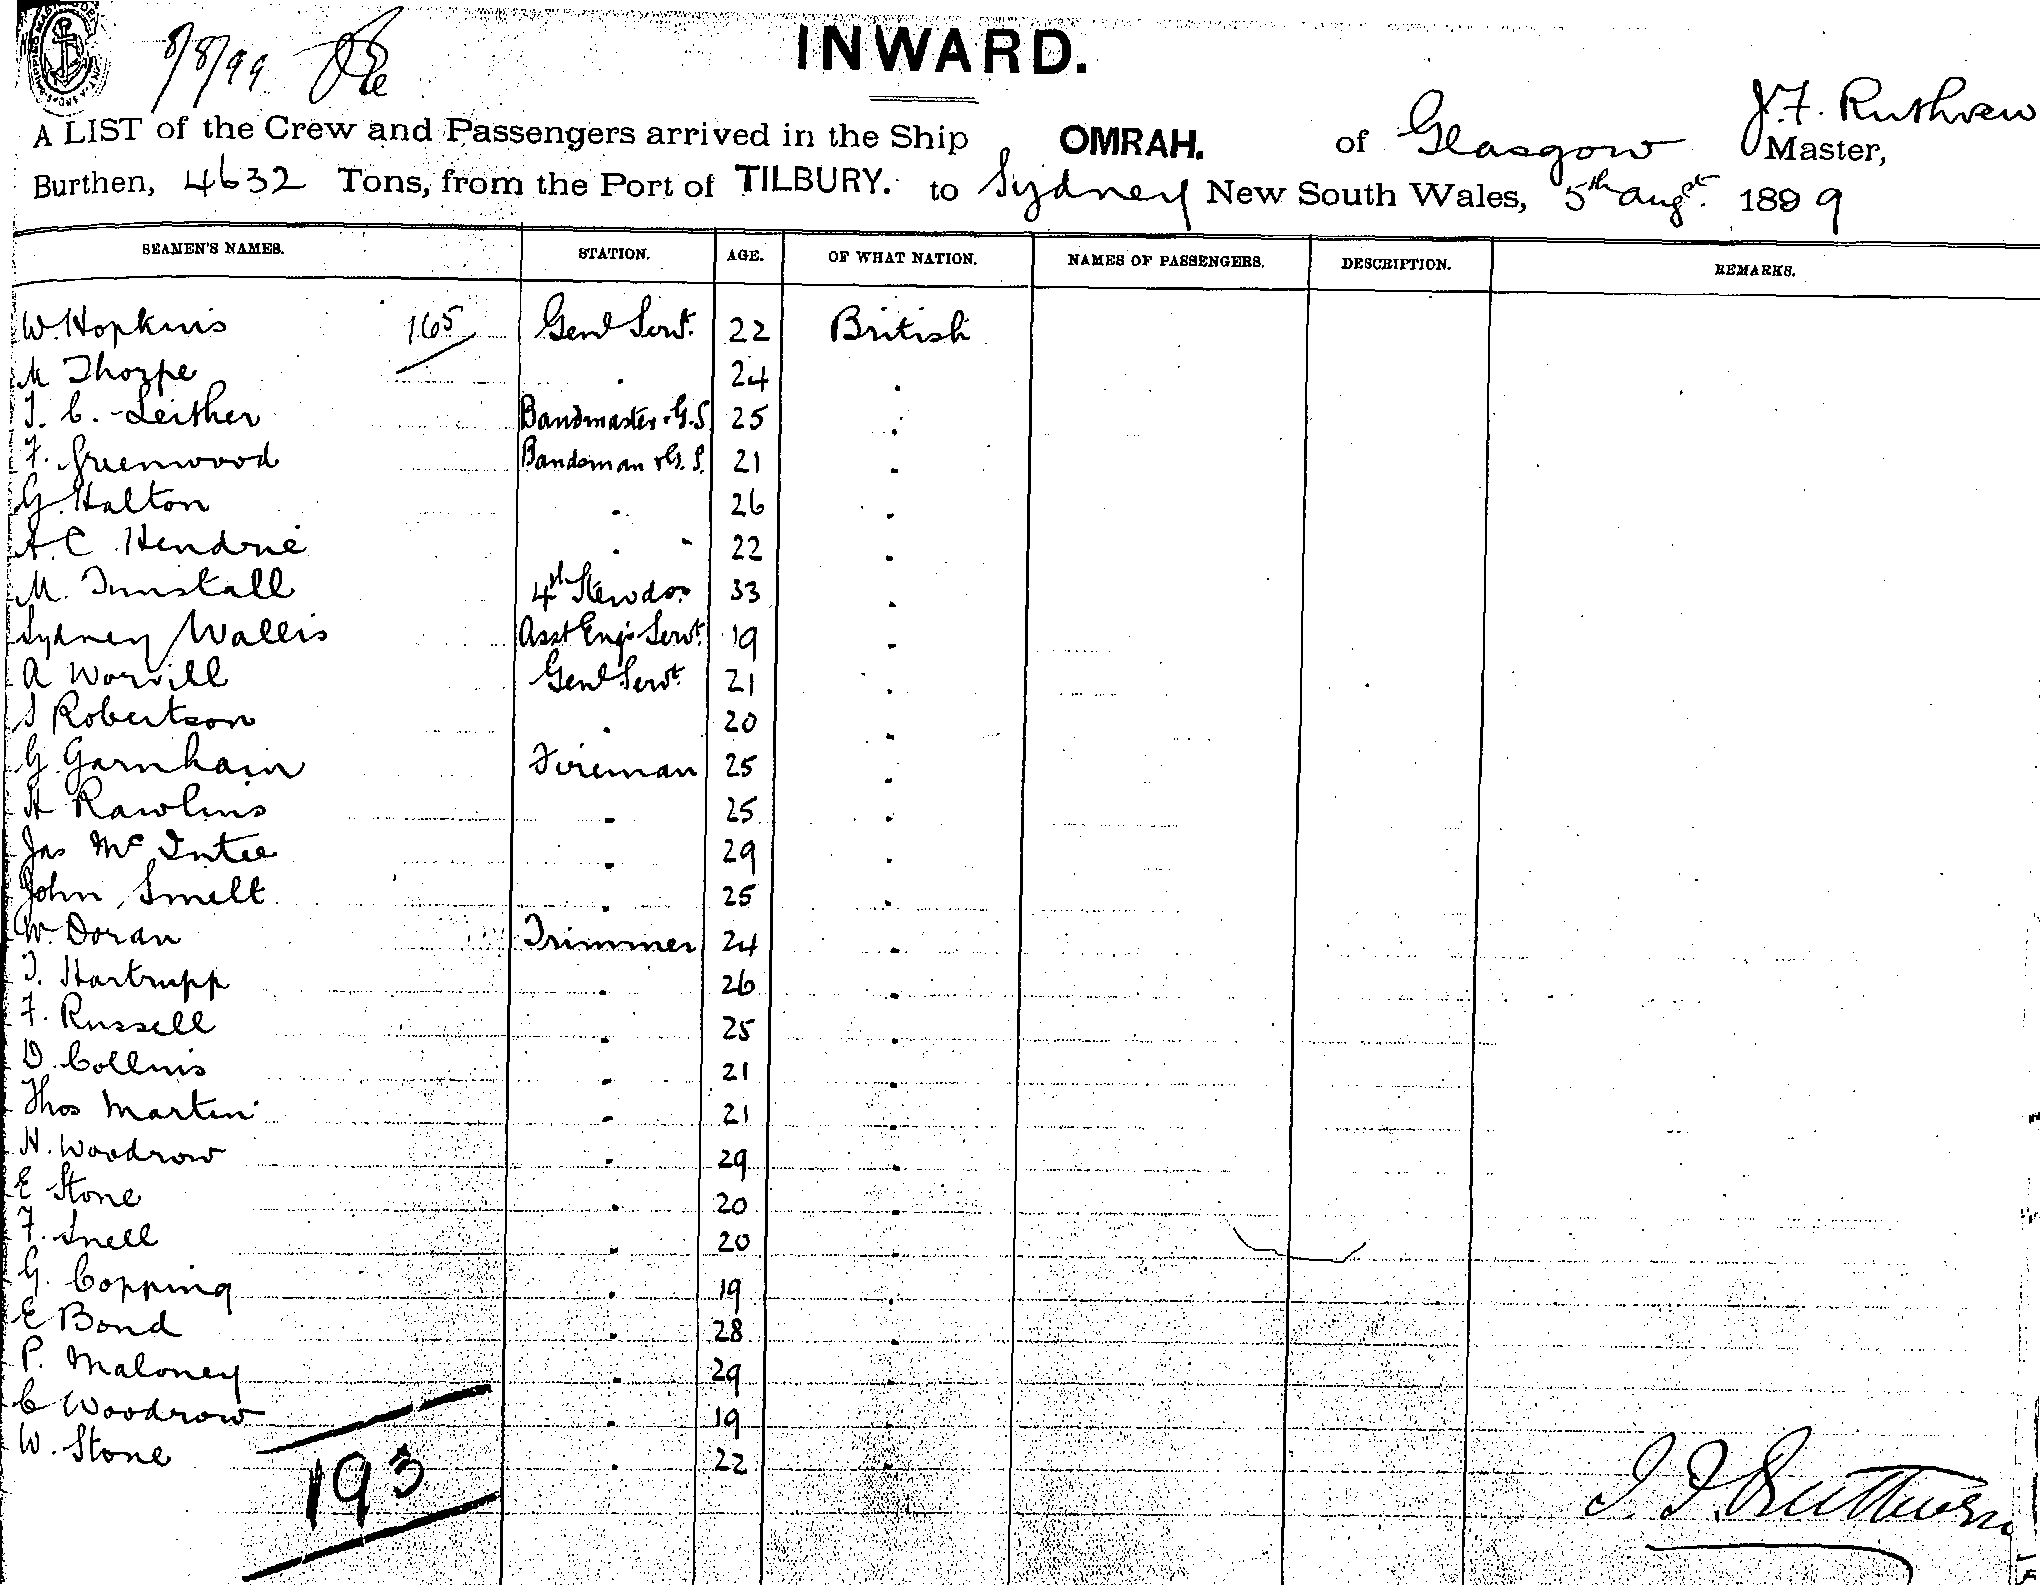 8/8/99
INWARD.
J. F. Ruthven
A LIST of the Crew and Passengers arrived in the Ship OMRAH. of Glasgow Master,
Burthen, 4632 Tons, from the Port of TILBURY. to Sydney New South Wales, 5th Augst. 1899
SEAMEN'S NAMES. STATION. AGE. OF WHAT NATION. NAMES OF PASSENGERS. DESCRIPTION. REMARKS.
W. Hopkins 165 Genl Servt. 22 British
M Thorpe . 24 .
J. C. Leither Bandmaster G.S. 25 .
F. Greenwood Bandsman & G. S. 21 .
G. Halton . 26 .
A. C. Hendrie . " 22 .
M. Tunstall 4th Stewdss 33 .
Sydney Wallis Asst Engs Servt. 19 .
A Worvill Genl Servt. 21 .
S Robertson . 20 .
G. Garnham Fireman 25 .
H Rawlins . 25 .
Jas McIntee . 29 .
John Smelt . 25 .
W. Doran Trimmer 24 .
T. Hartrupp . 26 .
F. Russell . 25 .
D. Collins . 21 .
Thos Martin . 21 .
H. Woodrow . 29 .
E Stone . 20 .
F. Snell . 20 .
G. Copping . 19 .
E Bond . 28 .
P. Maloney . 29 .
C Woodrow . 19 .
W. Stone . 22 .
193
J. F. Ruthven